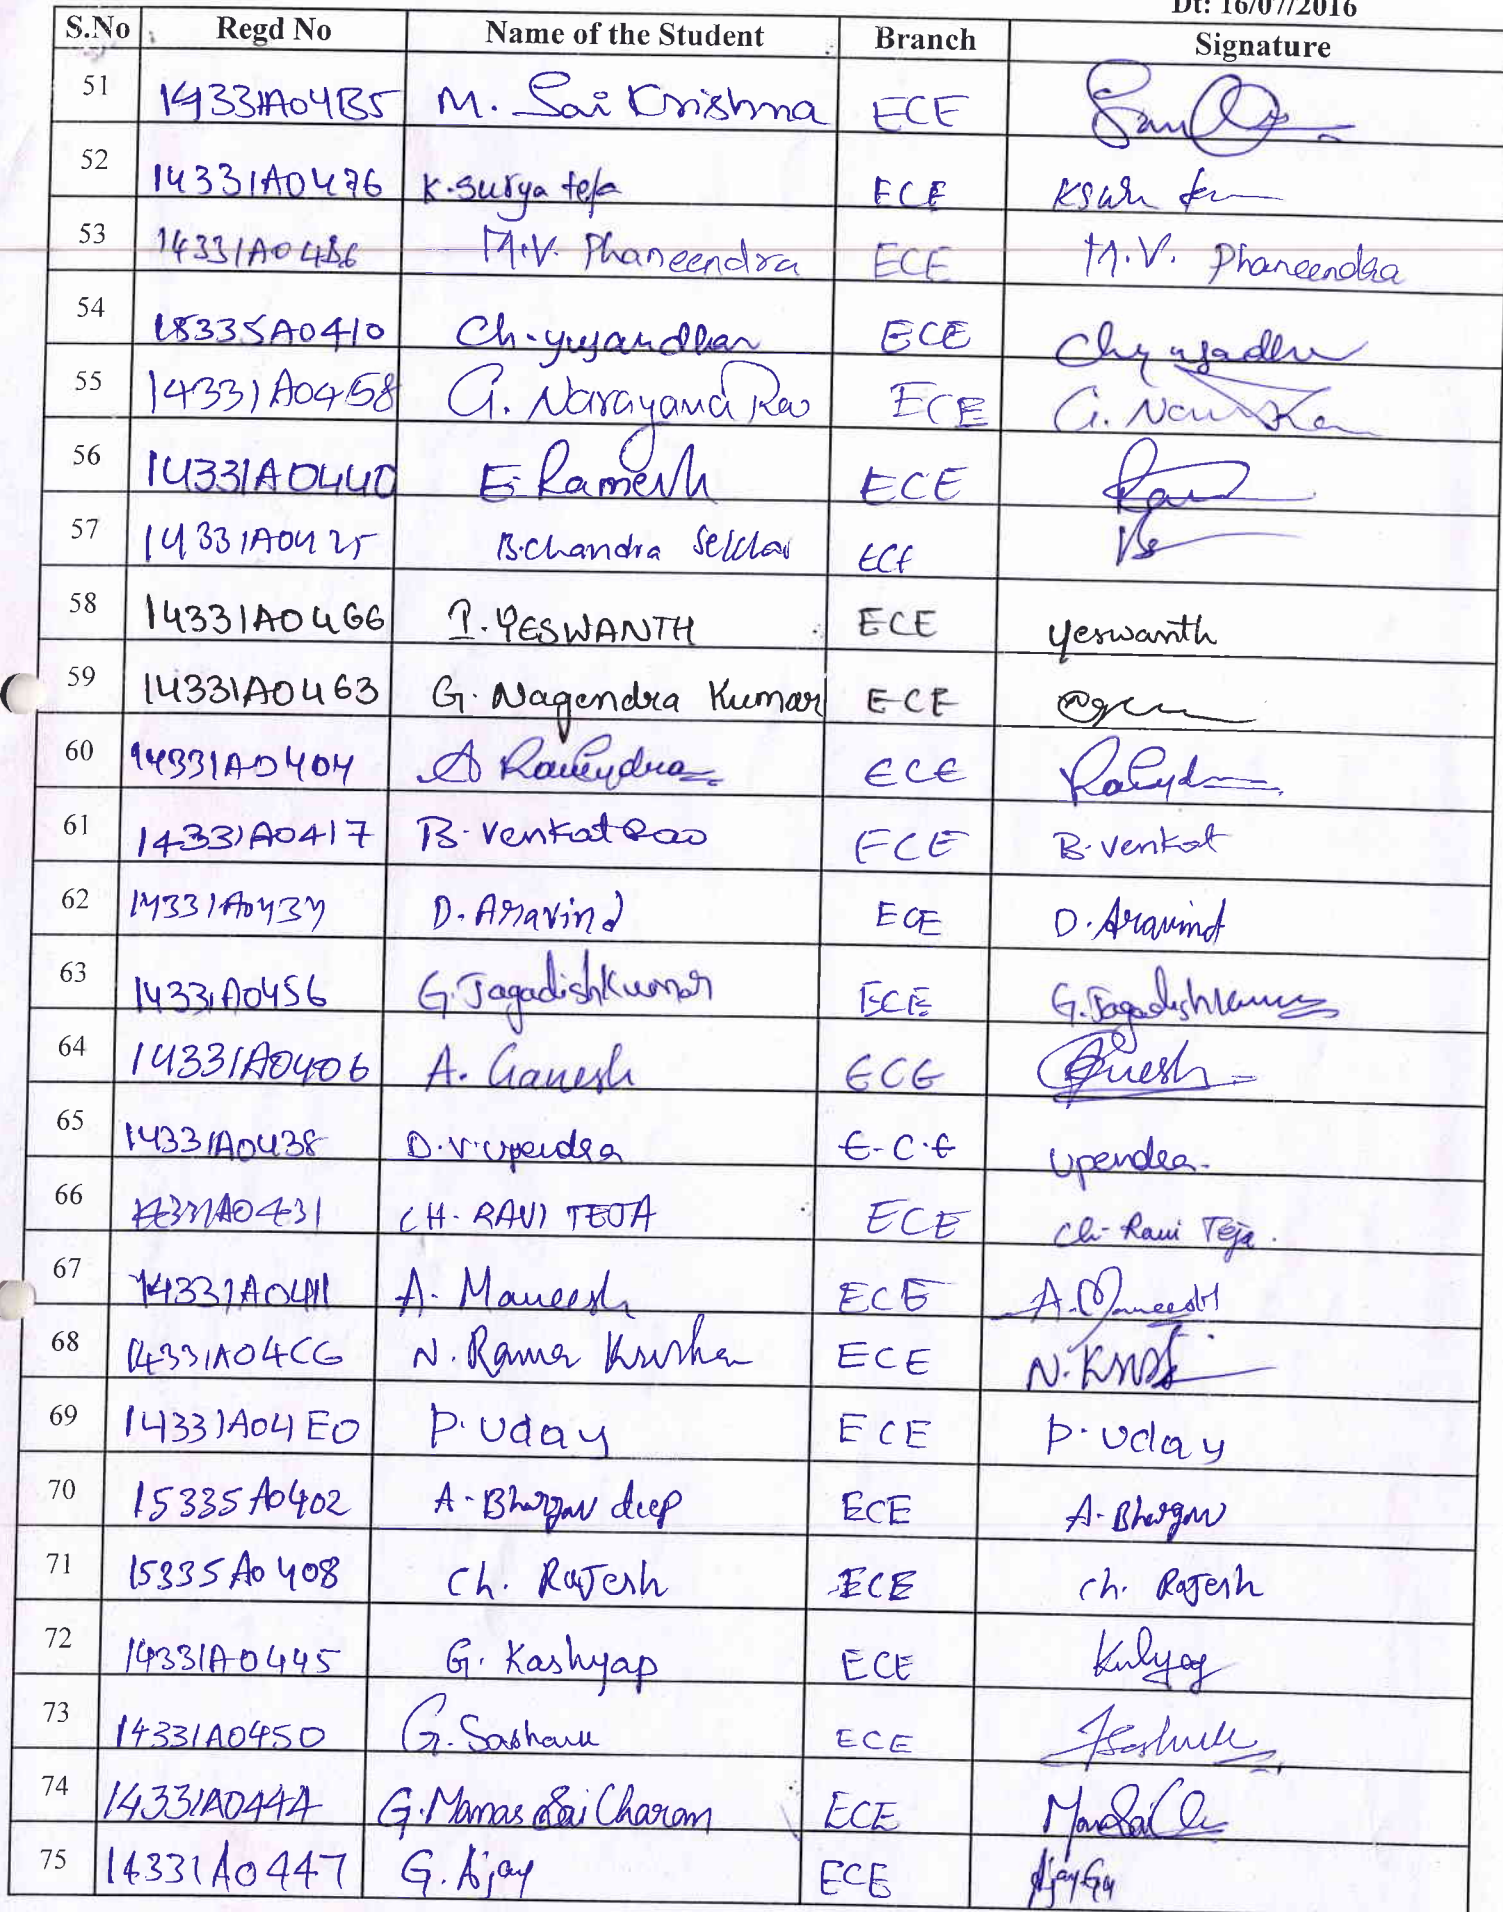 Dt: 16/07/2016
S.No Regd No Name of the Student Branch Signature
51 14331A04B5 M. Sai Krishna ECE
52 14331A0476 K. Surya teja ECE
53 14331A04B6 M.V. Phaneendra ECE M.V. Phaneendra
54 15335A0410 Ch. yugandhar ECE
55 14331A0458 G. Narayana Rao ECE
56 14331A0440 E. Ramesh ECE
57 14331A0425 B. Chandra Sekhar ECE
58 14331A0466 I. YESWANTH ECE yeswanth
59 14331A0463 G. Nagendra Kumar ECE
60 14331A0404 A Ravendra ECE
61 14331A0417 B. Venkat Rao ECE B. Venkat
62 14331A0434 D. Aravind ECE D. Aravind
63 14331A0456 G. Jagadish Kumar ECE G. Jagadish Kumar
64 14331A0406 A. Ganesh ECE
65 14331A0438 D.V. Upendra E.C.E Upendra.
66 14331A0431 CH. RAVI TEJA ECE Ch. Ravi Teja.
67 14331A0411 A. Maneesh ECE A. Maneesh
68 14331A04C6 N. Rama Krishna ECE
69 14331A04E0 P. Uday ECE P. Uday
70 15335A0402 A. Bhargav deep ECE A. Bhargav
71 15335A0408 Ch. Rajesh ECE Ch. Rajesh
72 14331A0445 G. Kashyap ECE
73 14331A0450 G. Sashank ECE
74 14331A0444 G. Manas Sai Charan ECE
75 14331A0447 G. Ajay ECE